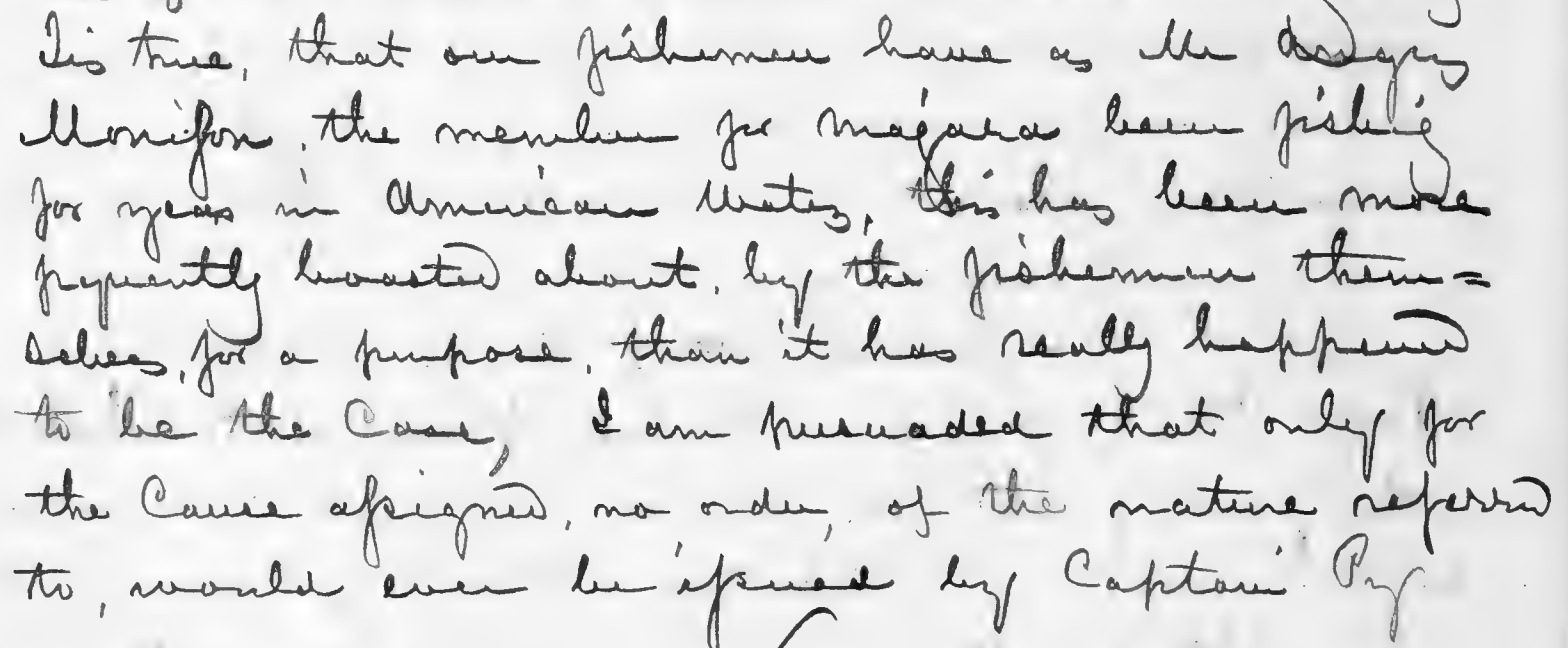 Tis true, that our fishermen have as Mr
Morrison, the member for Niagara been fishing
for years in American Waters, this has been more
frequently boasted about, by the fishermen them=
selves, for a purpose, than it has really happened
to be the Case, I am persuaded that only for
the Cause assigned, no order, of the nature referred
to, would ever be issued by Captain